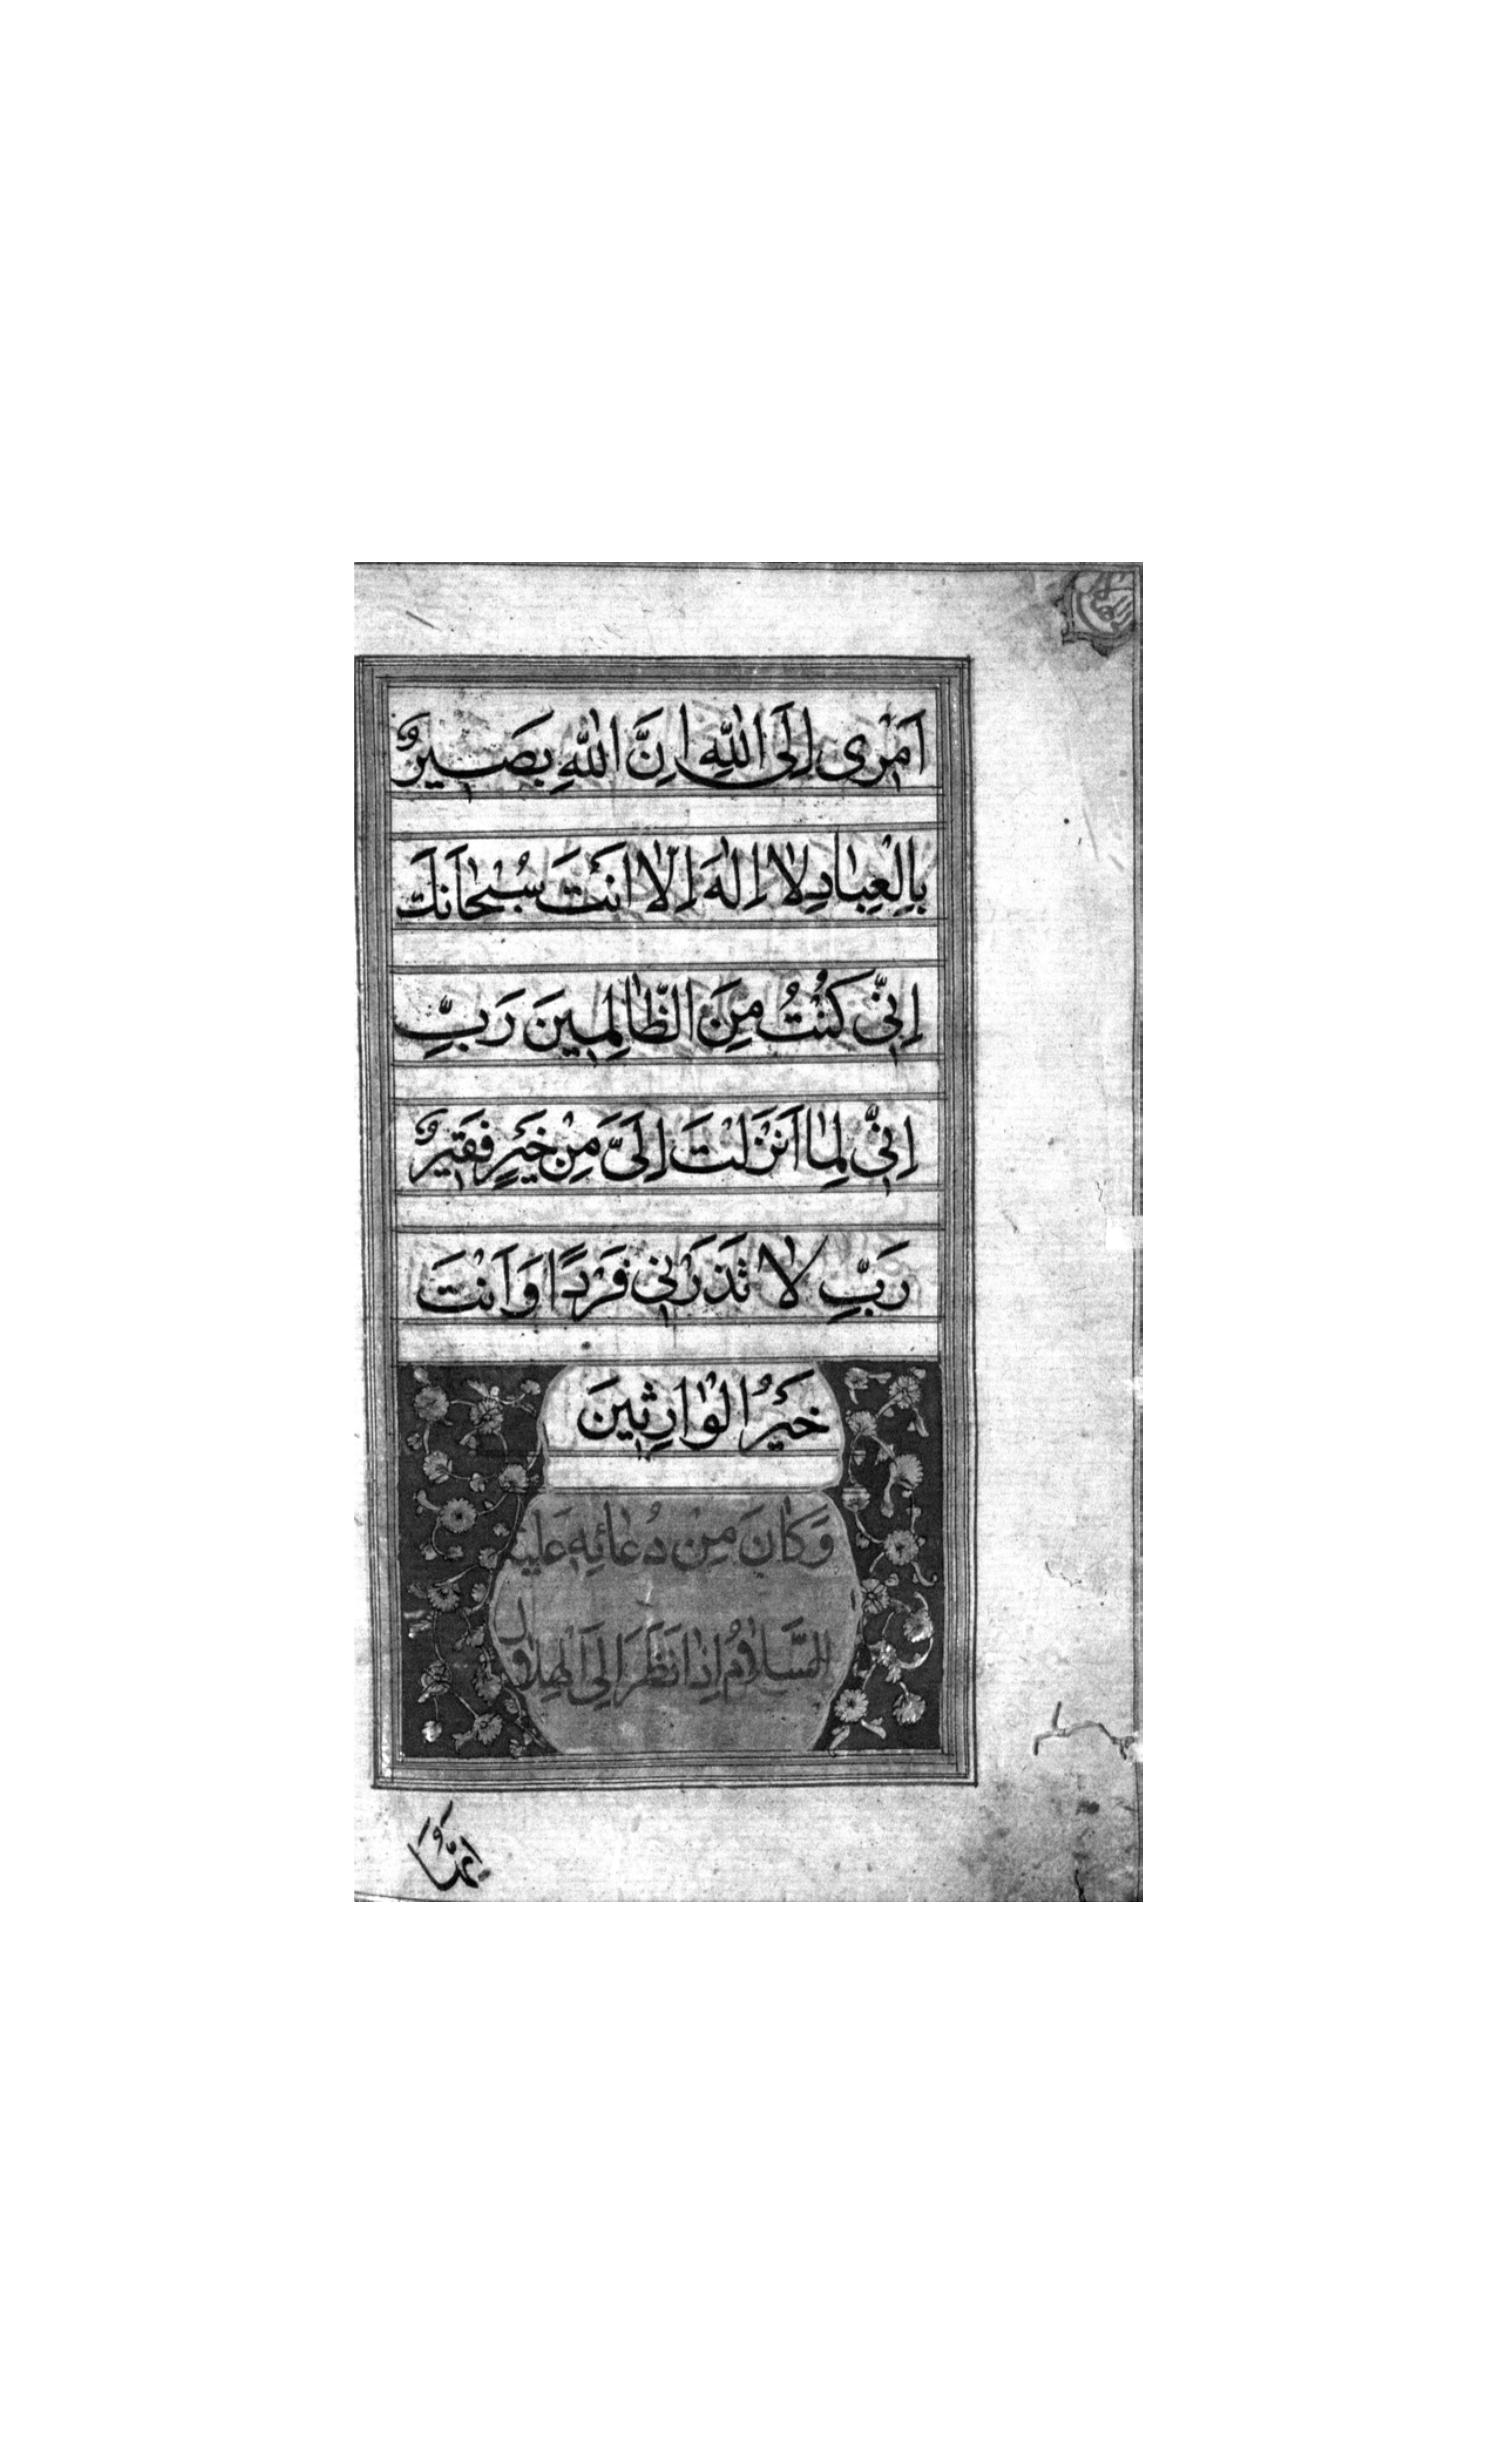 اَمْرى اِلَى اللّٰهِ اِنَّ اللّٰهَ بَصيرٌ
بِالْعِبٰادِ لٰا اِلٰهَ اِلّٰا اَنْتَ سُبْحٰانَكَ
اِنّى كُنْتُ مِنَ الظّٰالِمينَ رَبِّ
اِنّى لِمٰا اَنْزَلْتَ اِلَىَّ مِنْ خَيْرٍ فَقيرٌ
رَبِّ لٰا تَذَرْنى فَرْدًا وَاَنْتَ
خَيْرُ الْوٰارِثينَ
وَكٰانَ مِنْ دُعٰائِهِ عَلَيْهِ
السَّلٰامُ اِذٰا نَظَرَ اِلَى الْهِلٰالِ